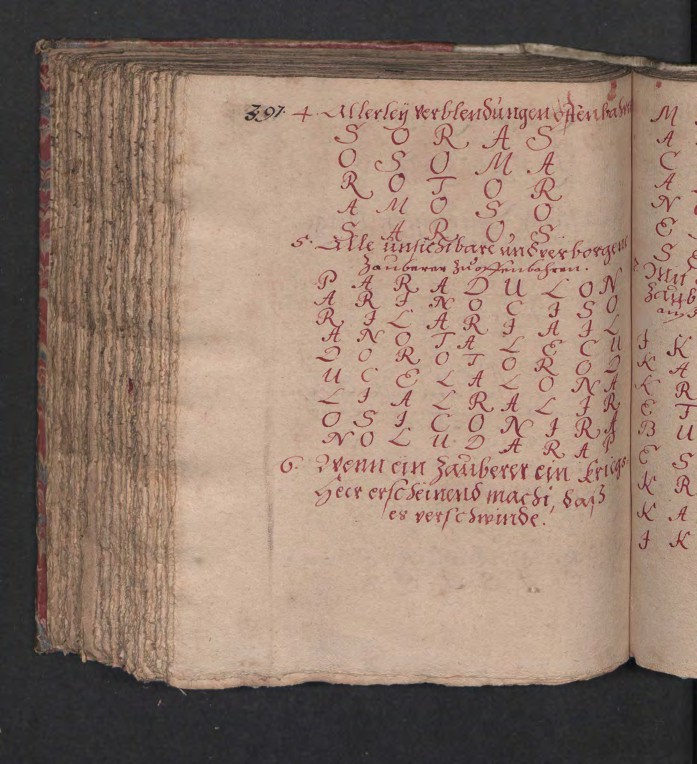 397. 4. Allerleÿ verblendungen offenbahren
S O R A S
O S O M A
R O T O R
A M O S O
S A R O S
5. Alle unsichtbare und verborgene
Zauberer zu offenbahren.
P A R A D U L O N
A R I N O C I S O
R I L A R I A I L
A N O T A L E C U
D O R O T O R O D
U C E L A L O N A
L I A L R A L I R
O S I C O N I R A
N O L U D A R A P
6. Wenn ein Zauberer ein Kriegs
Heer erscheinend macht, daß
es verschwinde.
M
A
C
A
N
E
S
Mit
Zaub
I K
K A
K R
E T
B U
E S
K R
K A
I K